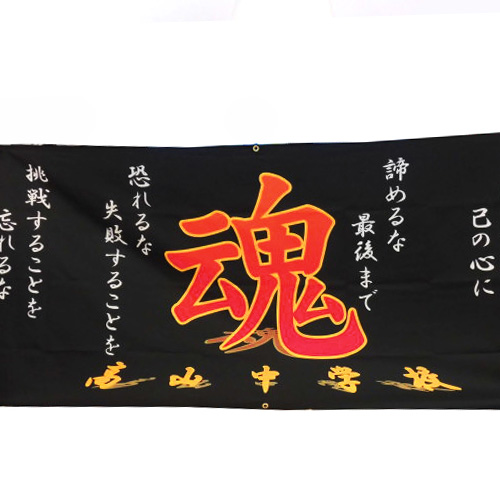 己の心に
最後まで
諦めるな
魂
失敗することを
恐れるな
挑戦することを
忘れるな
山中学校